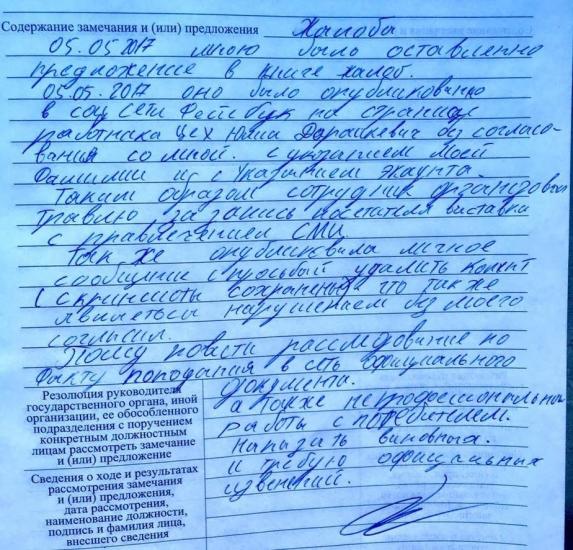 Содержание замечания и (или) предложения Жалоба
05.05.2017 мною было оставленно
предложение в книге жалоб.
05.05.2017 оно было опубликованно
в соц сети Фейсбук на странице
работника Цех Юлиа Дарашкевич без согласо-
вания со мной. с указанием моей
Фамилии и с указанием экаунта.
Таким образом сотрудник организовал
травлю за запись посетителя выставки
с привлечением СМИ.
Так-же опубликовила личное
сообщение с просьбой удалить контент
(скриншоты сохранены) что так же
являеться нарушением без моего
согласия.
Прошу повести расследование по
факту попадания в сеть официального
документа.
а также не профессиональной
работы с потребителем.
Наказать виновных.
и требую официальных
извенений.
Резолюция руководителя
государственного органа, иной
организации, ее обособленного
подразделения с поручением
конкретным должностным
лицам рассмотреть замечание
и (или) предложение
Сведения о ходе и результатах
рассмотрения замечания
и (или) предложения,
дата рассмотрения,
наименование должности,
подпись и фамилия лица,
внесшего сведения